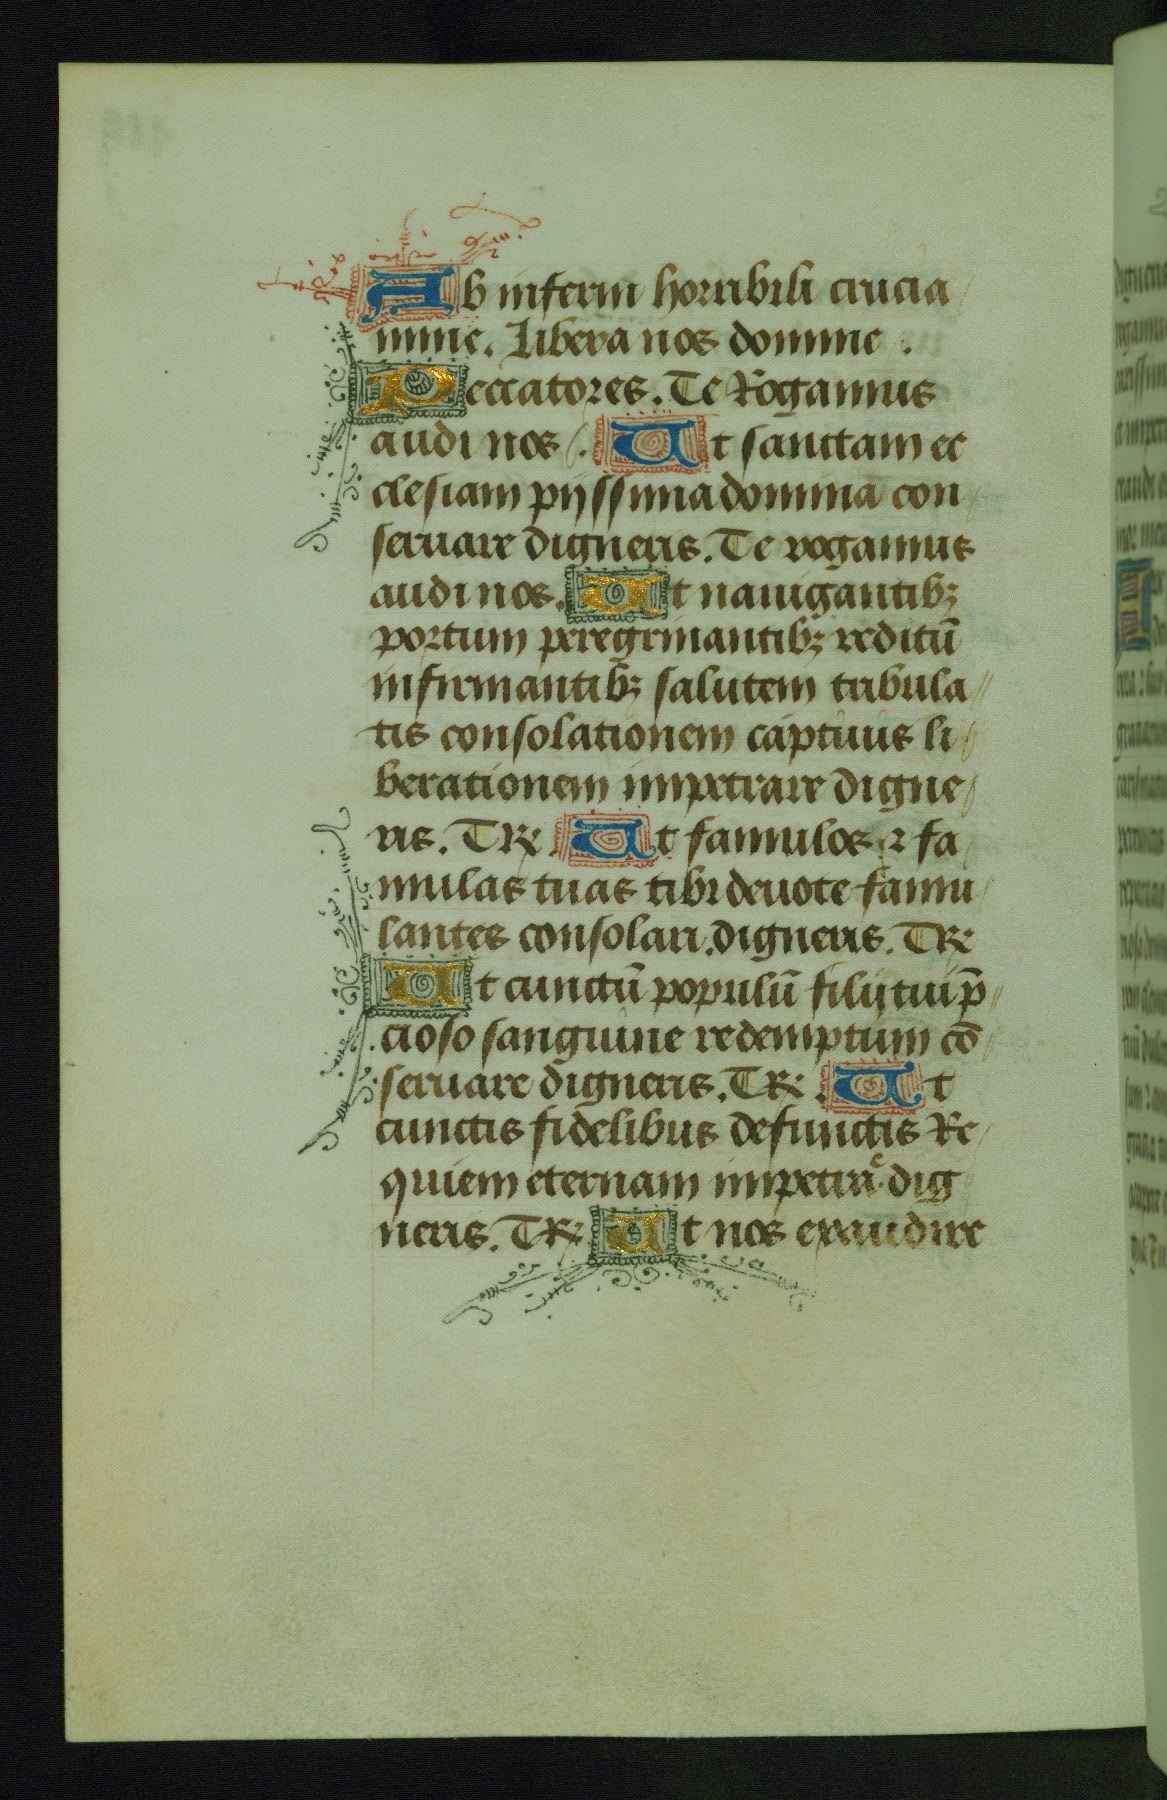 Ab inferni horribili crucia
mine. Libera nos domine.
Peccatores. Te Rogamus
audi nos. Ut sanctam ec
clesiam pijssima domina con
seruare digneris. Te rogamus
audi nos. Ut nauigantibꝫ
portum peregrinantibꝫ reditū
infirmantibꝫ salutem tribula
tis consolationem captiuis li
berationem impetrare digne
ris. TR. Ut famulos ⁊ fa
mulas tuas tibi deuote famu
lantes consolari digneris. TR
Ut cunctū populū filij tui p̄
cioso sanguine redemptum cō
seruare digneris. TR. Ut
cunctis fidelibus defunctis Re
quiem eternam impetrar̄ dig
neris. TR. Ut nos exaudire